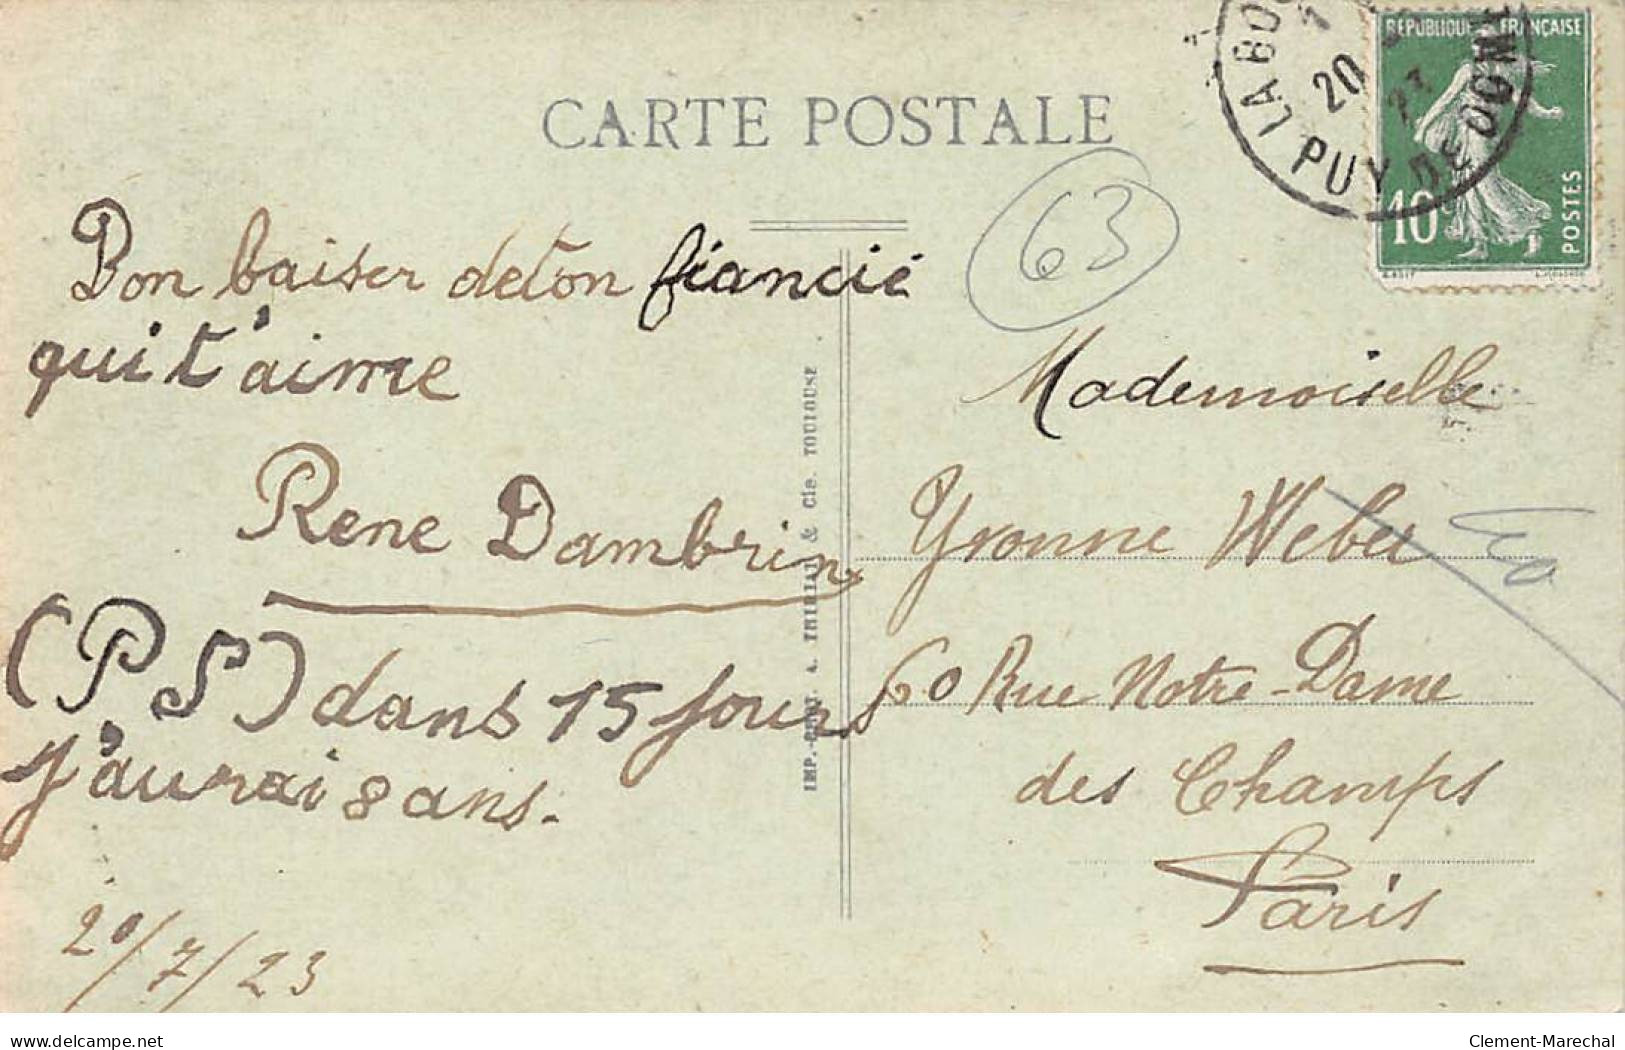 CARTE POSTALE
RÉPUBLIQUE FRANÇAISE
10c
POSTES
20
23
PUY DE DOME
63
Bon baiser de ton fiancié
qui t'aime
Rene Dambrin
(PS) dans 15 jours
j'aurai 8 ans.
20/7/23
IMP.-PHOT. A. THIRIAT & Cie. TOULOUSE
Mademoiselle
Yvonne Weber
60 Rue Notre-Dame
des Champs
Paris
delcampe.net
Clement-Marechal